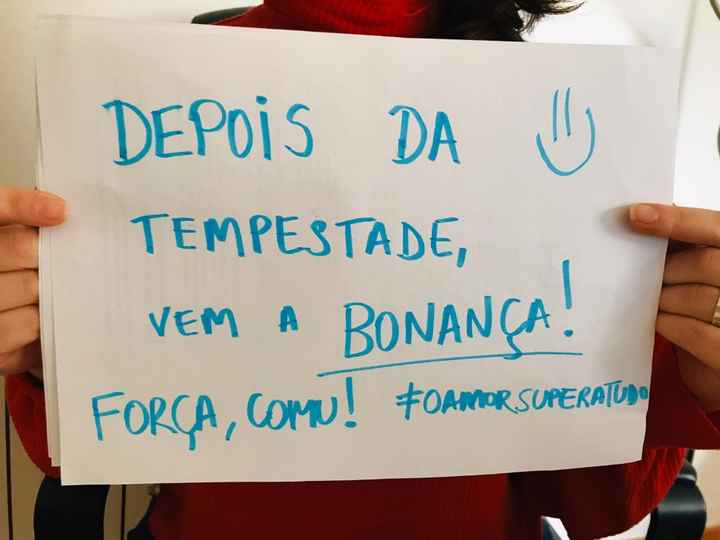 DEPOIS DA
TEMPESTADE,
VEM A BONANÇA!
FORÇA, COMU! #OAMORSUPERATUDO